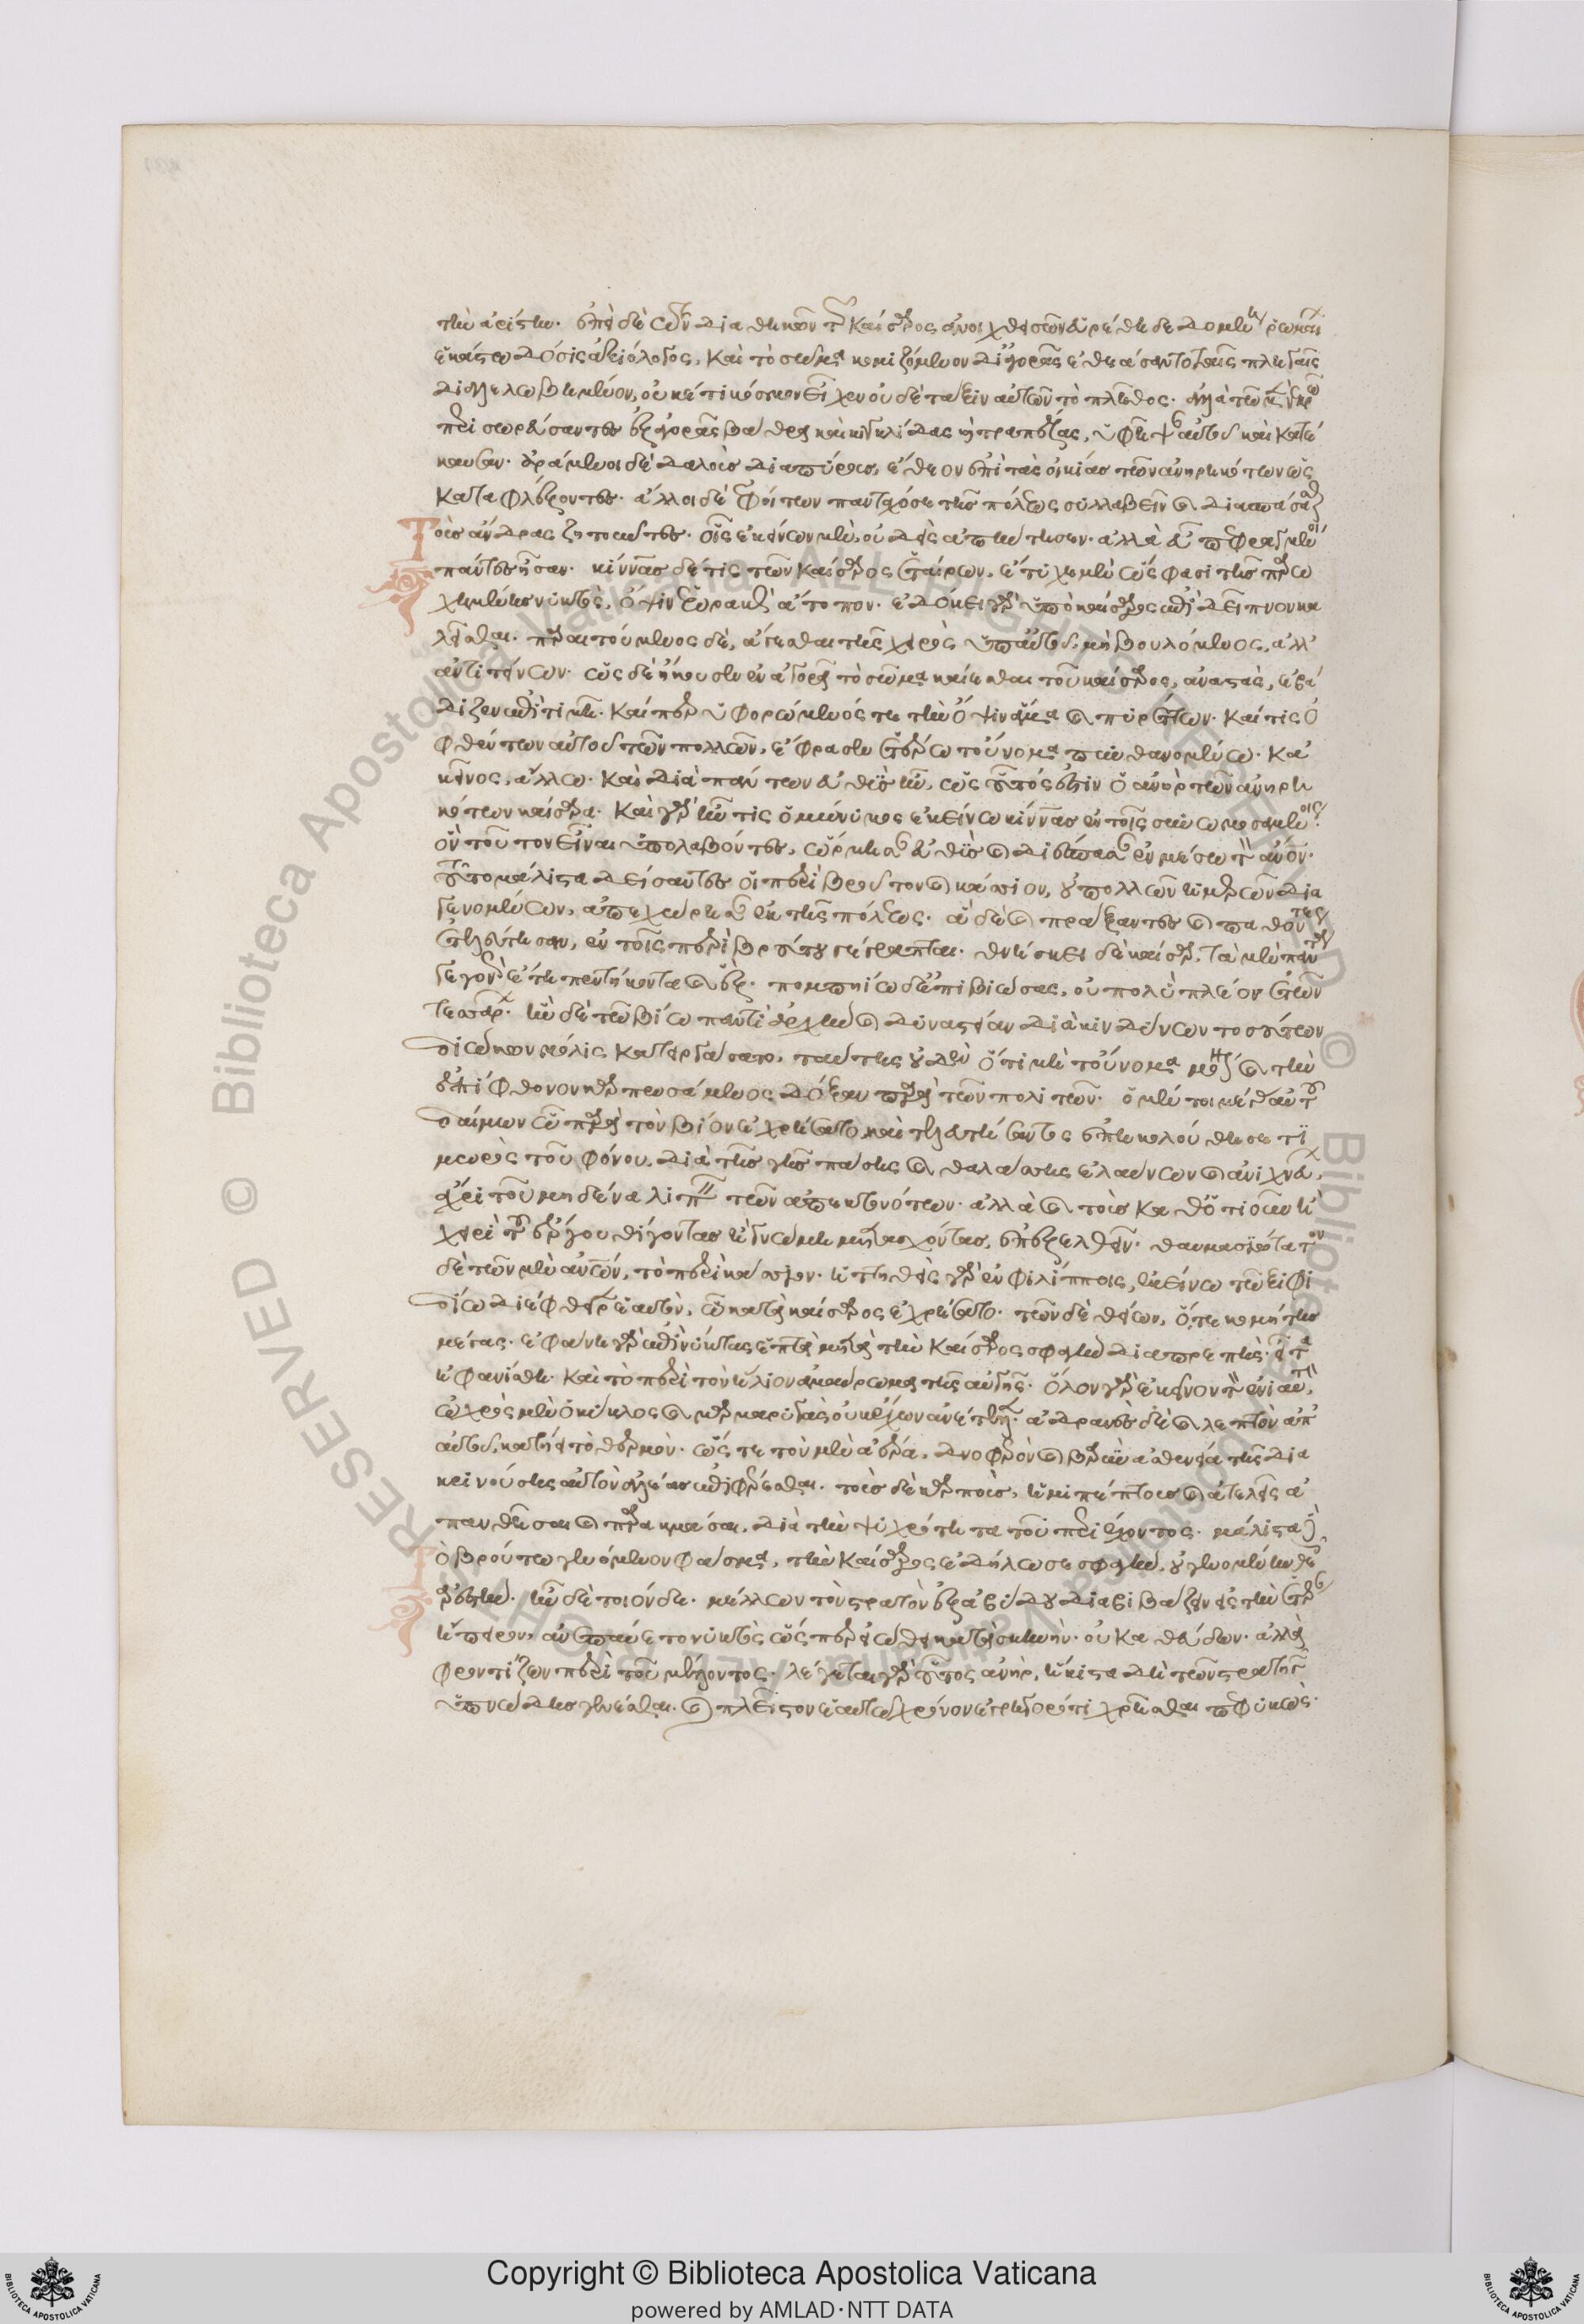 τὴν ἀρίστην. ἐπεὶ δὲ τῶν διαθηκῶν τῶν Καίσαρος ἀνοιχθεισῶν εὑρέθη δεδομένη ῥωμαίων
ἑκάστῳ δόσις ἀξιόλογος, καὶ τὸ σῶμα κομιζόμενον δι' ἀγορᾶς ἐθεάσαντο ταῖς πληγαῖς
διαλελωβημένον, οὐκέτι κόσμον εἶχεν οὐδὲ τάξιν αὐτῶν τὸ πλῆθος. ἀλλὰ τῷ μὲν νεκρῷ
περισωρεύσαντες ἐξ ἀγορᾶς βάθρα καὶ κιγκλίδας καὶ τραπέζας, ὑφῆψαν αὐτοῦ καὶ κατέ
καυσαν. ἀράμενοι δὲ δαλοὺς διαπύρους, ἔθεον ἐπὶ τὰς οἰκίας τῶν ἀνῃρηκότων ὡς
καταφλέξοντες. ἄλλοι δὲ ἐφοίτων πανταχόσε τῆς πόλεως συλλαβεῖν καὶ διασπάσασθαι
Τοὺς ἄνδρας ζητοῦντες. οἷς ἐκείνων μὲν, οὐδεὶς ἀπήντησεν. ἀλλὰ εὖ πεφραγμένοι
πάντες ἦσαν. κίννας δέ τις τῶν Καίσαρος ἑταίρων, ἔτυχε μὲν ὥς φασι τῆς παρῳ
χημένης νυκτὸς, ὄψιν ἑωρακὼς ἄτοπον. ἐδόκει γὰρ ὑπὸ καίσαρος ἐπὶ δεῖπνον κα
λεῖσθαι. παραιτούμενος δὲ, ἄγεσθαι τῆς χειρὸς ὑπ' αὐτοῦ, μὴ βουλόμενος, ἀλλ'
ἀντιτείνων. ὡς δὲ ἤκουσεν ἐν ἀγορᾷ τὸ σῶμα καίεσθαι τοῦ καίσαρος, ἀναστὰς, ἐβά
διζεν ἐπὶ τιμῇ. καίπερ ὑφορώμενός τε τὴν ὄψιν ἅμα καὶ πυρέττων. καί τις ὀ
φθέντων αὐτοῦ τῶν πολλῶν, ἔφρασεν ἑτέρῳ τοὔνομα πυνθανομένῳ. κἀ
κεῖνος, ἄλλῳ. καὶ διὰ πάντων εὐθὺς ἦν, ὡς οὗτός ἐστιν ὁ ἀνὴρ τῶν ἀνῃρη
κότων καίσαρα. καὶ γὰρ ἦν τις ὁμώνυμος ἐκείνῳ κίννας ἐν τοῖς συνωμοσαμένοις.
ὃν τοῦτον εἶναι ὑπολαβόντες, ὥρμησαν εὐθὺς καὶ διέσπασαν ἐν μέσῳ τὸν ἄνθρωπον.
τοῦτο μάλιστα δείσαντες οἱ περὶ βροῦτον καὶ κάσσιον, οὐ πολλῶν ἡμερῶν δια
γενομένων, ἀπεχώρησαν ἐκ τῆς πόλεως. ἃ δὲ καὶ πράξαντες καὶ παθόντες
ἐτελεύτησαν, ἐν τοῖς περὶ βρούτου γέγραπται. θνήσκει δὲ καίσαρ, τὰ μὲν πάντα
γεγονὼς ἔτη πεντήκοντα καὶ ἕξ. πομπηίῳ δ' ἐπιβιώσας, οὐ πολὺ πλέον ἐτῶν
τεσσάρων. ἣν δὲ τῷ βίῳ παντὶ ἀρχὴν καὶ δυναστείαν διὰ κινδύνων τοσούτων
διώκων μόλις κατειργάσατο, ταύτης οὐδὲν ὅτι μὴ τοὔνομα μόνον καὶ τὴν
ἐπίφθονον καρπωσάμενος δόξαν παρὰ τῶν πολιτῶν. ὁ μέντοι μέγας αὐτοῦ
δαίμων ᾧ παρὰ τὸν βίον ἐχρήσατο, καὶ τελευτήσαντος ἐπηκολούθησε τι
μωρὸς τοῦ φόνου, διὰ τῆς γῆς πάσης καὶ θαλάσσης ἐλαύνων καὶ ἀνιχνεύων,
ἄχρι τοῦ μηδένα λιπεῖν τῶν ἀπεκτονότων. ἀλλὰ καὶ τοὺς καθ' ὁτιοῦν ἢ
χειρὶ τοῦ ἔργου θιγόντας ἢ γνώμη μετασχόντας, ἐπεξελθεῖν. θαυμασιώτατον
δὲ τῶν μὲν ἀνθρωπίνων, τὸ περὶ κάσσιον. ἡττηθεὶς γὰρ ἐν φιλίπποις, ἐκείνῳ τῷ ξιφι
δίῳ διέφθειρεν ἑαυτὸν, ᾧ κατὰ καίσαρος ἐχρήσατο. τῶν δὲ θείων, ὅ τε κομήτης
μέγας. ἐφάνη γὰρ ἐπὶ νύκτας ἑπτὰ μετὰ τὴν Καίσαρος σφαγὴν διαπρεπὴς. εἶτα
ἠφανίσθη. καὶ τὸ περὶ τὸν ἥλιον ἀμαύρωμα τῆς αὐγῆς. ὅλον γὰρ ἐκεῖνον τὸν ἐνιαυτὸν,
ὠχρὸς μὲν ὁ κύκλος καὶ μαρμαρυγὰς οὐκ ἔχων ἀνέτελλεν. ἀδρανὲς δὲ καὶ λεπτὸν ἀπ'
αὐτοῦ, κατῄει τὸ θερμὸν. ὥστε τὸν μὲν ἀέρα, δνοφερὸν καὶ βαρὺν ἀσθενείᾳ τῆς δια
κρινούσης αὐτὸν ἀλέας ἐπιφέρεσθαι. τοὺς δὲ καρποὺς, ἡμιπέπτους καὶ ἀτελεῖς ἀ
πανθῆσαι καὶ παρακμάσαι, διὰ τὴν ψυχρότητα τοῦ περιέχοντος. μάλιστα δὲ,
Τὸ βρούτῳ γενόμενον φάσμα, τὴν Καίσαρος ἐδήλωσε σφαγὴν, οὐ γενομένην θεοῖς
ἀρεστήν. ἦν δὲ τοιόνδε. μέλλων τὸν στρατὸν ἐξ ἀβύδου διαβιβάζειν εἰς τὴν ἑτέραν
ἤπειρον, ἀνεπαύετο νυκτὸς ὥσπερ εἰώθει κατὰ σκηνὴν. οὐ καθεύδων. ἀλλὰ
φροντίζων περὶ τοῦ μέλλοντος. λέγεται γὰρ οὗτος ἀνὴρ, ἥκιστα δὴ τῶν στρατηγῶν
ὑπνώδης γενέσθαι. καὶ πλεῖστον ἑαυτῷ χρόνον ἐγρηγορότι χρῆσθαι πεφυκὼς.
© Biblioteca Apostolica Vaticana ALL RIGHTS RESERVED
Copyright © Biblioteca Apostolica Vaticana
powered by AMLAD·NTT DATA
BIBLIOTECA APOSTOLICA VATICANA
BIBLIOTECA APOSTOLICA VATICANA